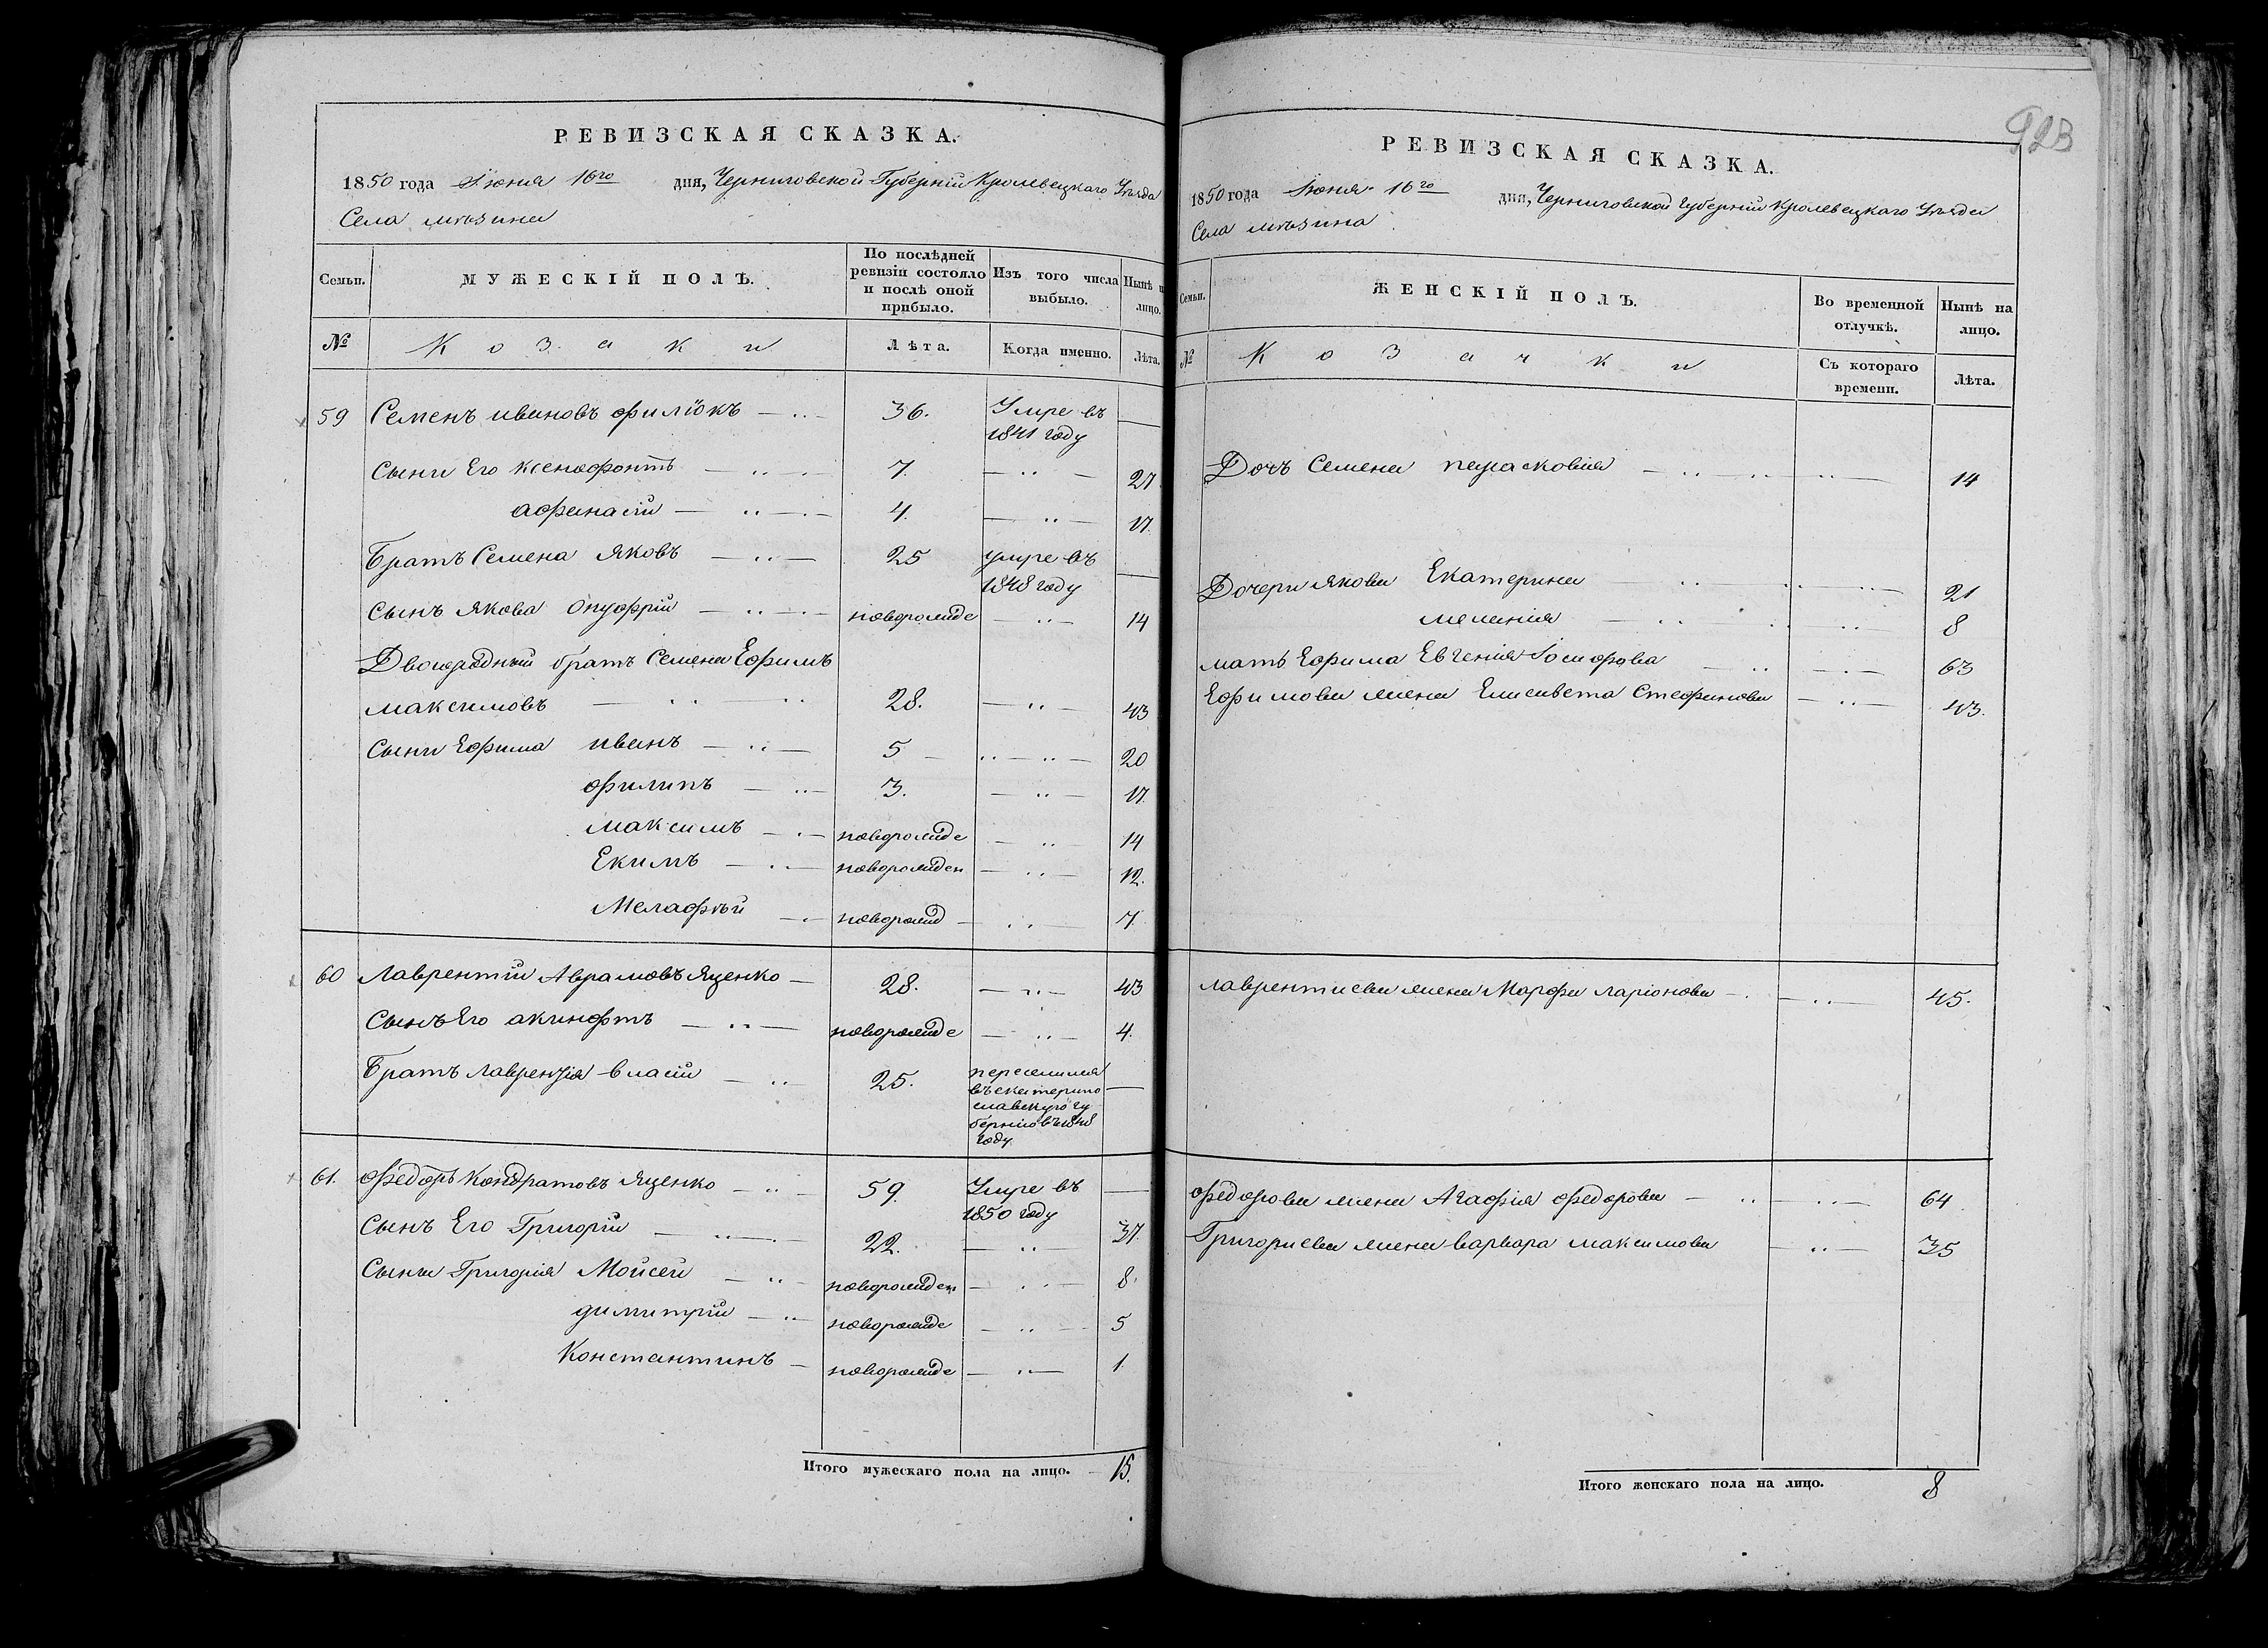 РЕВИЗСКАЯ СКАЗКА.
1850 года Июня 16го дня, Черниговской Губерніи Кролевецкаго Уезда
Села мезина
Семьи. МУЖЕСКІЙ ПОЛЪ. По послѣдней ревизіи состояло и послѣ оной прибыло. Изъ того числа выбыло. Нынѣ н лицо.
№ Козаки Лѣта. Когда именно. Лѣта.
59 Семенъ ивановъ филюкъ 36. Умре въ
1841 году
Сыни Его ксенофонтъ 7. 27
афанасій 4. 17.
Братъ Семена Яковъ 25 умре въ
1848 году
Сынъ Якова онуфрій новорожде 14
Двоюродный братъ Семена Ефимъ
максимовъ 28. 43
Сыни Ефима иванъ 5 20
филипъ 3. 17.
максимъ новорожде 14
Екимъ новорожден 12.
Мелафѣй новорожд 7.
60 Лаврентій Аврамовъ Яценко 28. 43
Сынъ Его акинфтъ новорожде 4.
Братъ лаврентія власій 25. переселился
въ екатерино
славскую гу
бернію въ 1848
году
61. Федоръ Кондратовъ Яценко 59. Умре въ
1850 году
Сынъ Его Григорій 22. 37.
Сыны Григорія Мойсей новорожден 8.
димитрій новорожде 5
Константинъ новорожде 1.
Итого мужескаго пола на лицо. 15.
923
РЕВИЗСКАЯ СКАЗКА.
1850 года Июня 16го дня, Черниговской губерніи Кролевецкаго Уезда
Села мезина
Семьи. ЖЕНСКІЙ ПОЛЪ. Во временной отлучкѣ. Нынѣ на лицо.
№ Козачки Съ котораго времени. Лѣта.
Дочъ Семена парасковія 14
Дочери Якова Екатерина 21
меланія 8
мать Ефима Евгенія Іосифова 63
Ефимова жена Елисавета Стефанова 43.
лаврентиева жена Марфа ларіонова 45.
федорова жена Агафія федорова 64
Григориева жена варвара максимова 35
Итого женскаго пола на лицо. 8